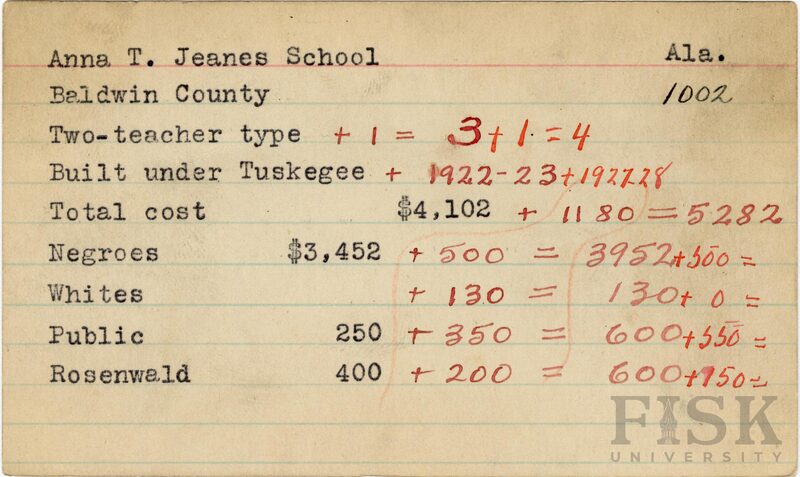 Anna T. Jeanes School Ala.
Baldwin County 1002
Two-teacher type + 1 = 3 + 1 = 4
Built under Tuskegee + 1922-23 + 1927-28
Total cost $4,102 + 1180 = 5282
Negroes $3,452 + 500 = 3952 + 500 =
Whites + 130 = 130 + 0 =
Public 250 + 350 = 600 + 550 =
Rosenwald 400 + 200 = 600 + 150 =
FISK
UNIVERSITY